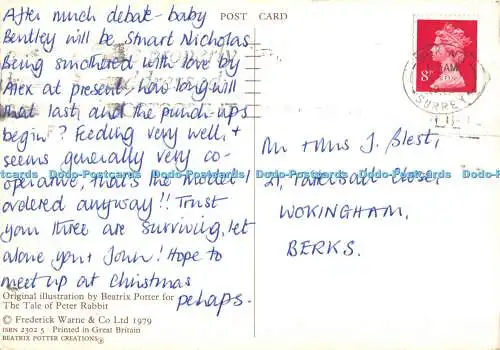 After much debate - baby
Bentley will be Stuart Nicholas
Being smothered with love by
Alex at present, how long will
that last, and the punch-ups
begin? Feeding very well, +
seems generally very co-
operative, that's the model I
ordered anyway!! Trust
your three are surviving, let
alone you + John! Hope to
meet up at Christmas
pehaps.
Original illustration by Beatrix Potter for
The Tale of Peter Rabbit
© Frederick Warne & Co Ltd 1979
ISBN 2302 5 Printed in Great Britain
BEATRIX POTTER CREATIONS
POST CARD
8P
AM
SURREY
Mr + Mrs J. Blest,
21, Close,
WOKINGHAM,
BERKS.
Dodo-Postcards Dodo-Postcards Dodo-Postcards Dodo-Postcards Dodo-Postcards